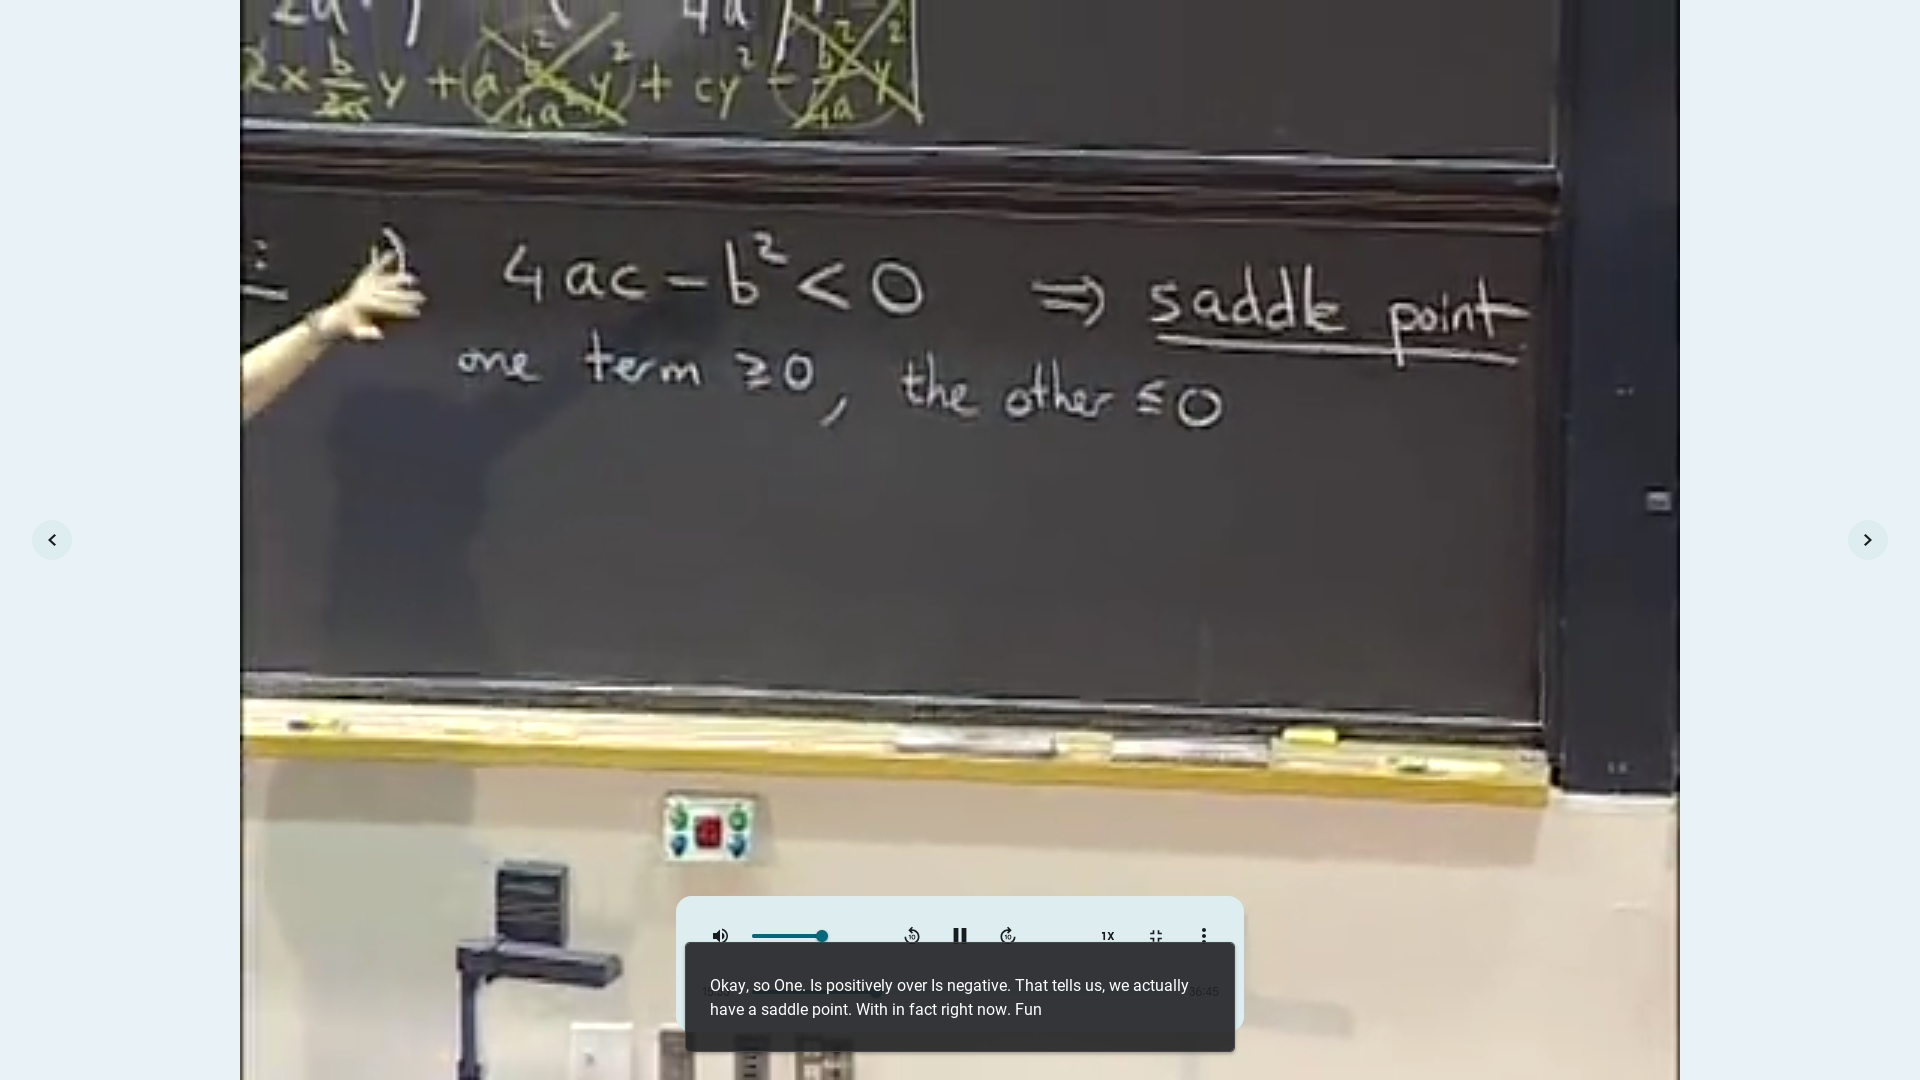 2x b/2a y + (a · b²/4a² y²) + cy² - b²/4a y²
4ac - b² < 0 ⇒ saddle point
one term ≥ 0, the other ≤ 0
1X
36:45
Okay, so One. Is positively over Is negative. That tells us, we actually
have a saddle point. With in fact right now. Fun